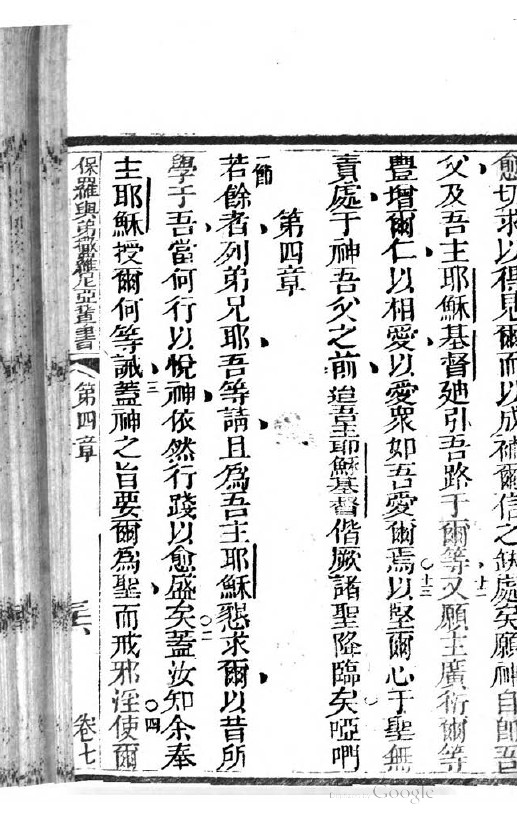 愈切求以得見爾而以成補爾信之缺處矣願神自即吾
十一
父及吾主耶穌基督廸引吾路于爾等又願主廣衍爾等
十二
豐增爾仁以相愛以愛眾如吾愛爾焉以堅爾心于聖無
責處于神吾父之前迨吾主耶穌基督偕厥諸聖降臨矣啞吀
第四章
一節
若餘者列弟兄耶吾等請且為吾主耶穌懇求爾以昔所
學于吾當何行以悅神依然行踐以愈盛矣蓋汝知余奉
二
主耶穌授爾何等誡蓋神之旨要爾為聖而戒邪淫使爾
三
四
保羅與弟撒羅尼亞輩書
第四章
卷七
Google